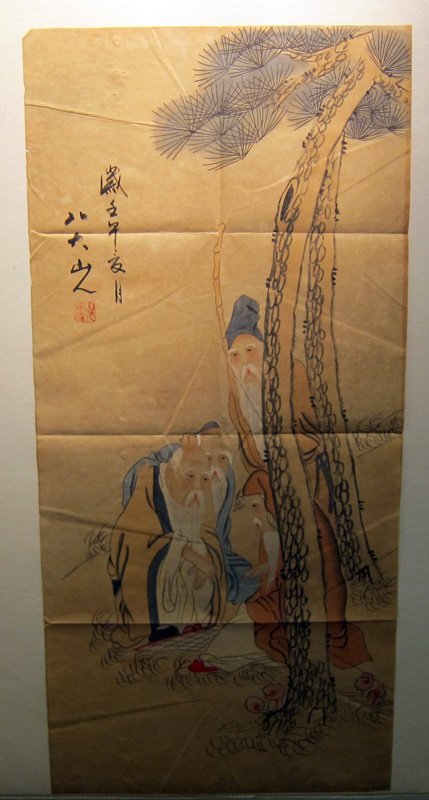 歲壬午夏月
八大山人